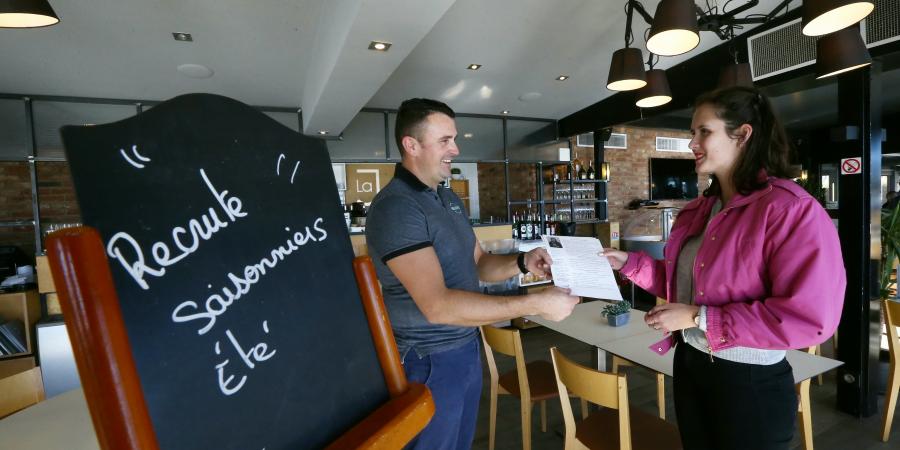 " Recrute "
Saisonniers
Été
La